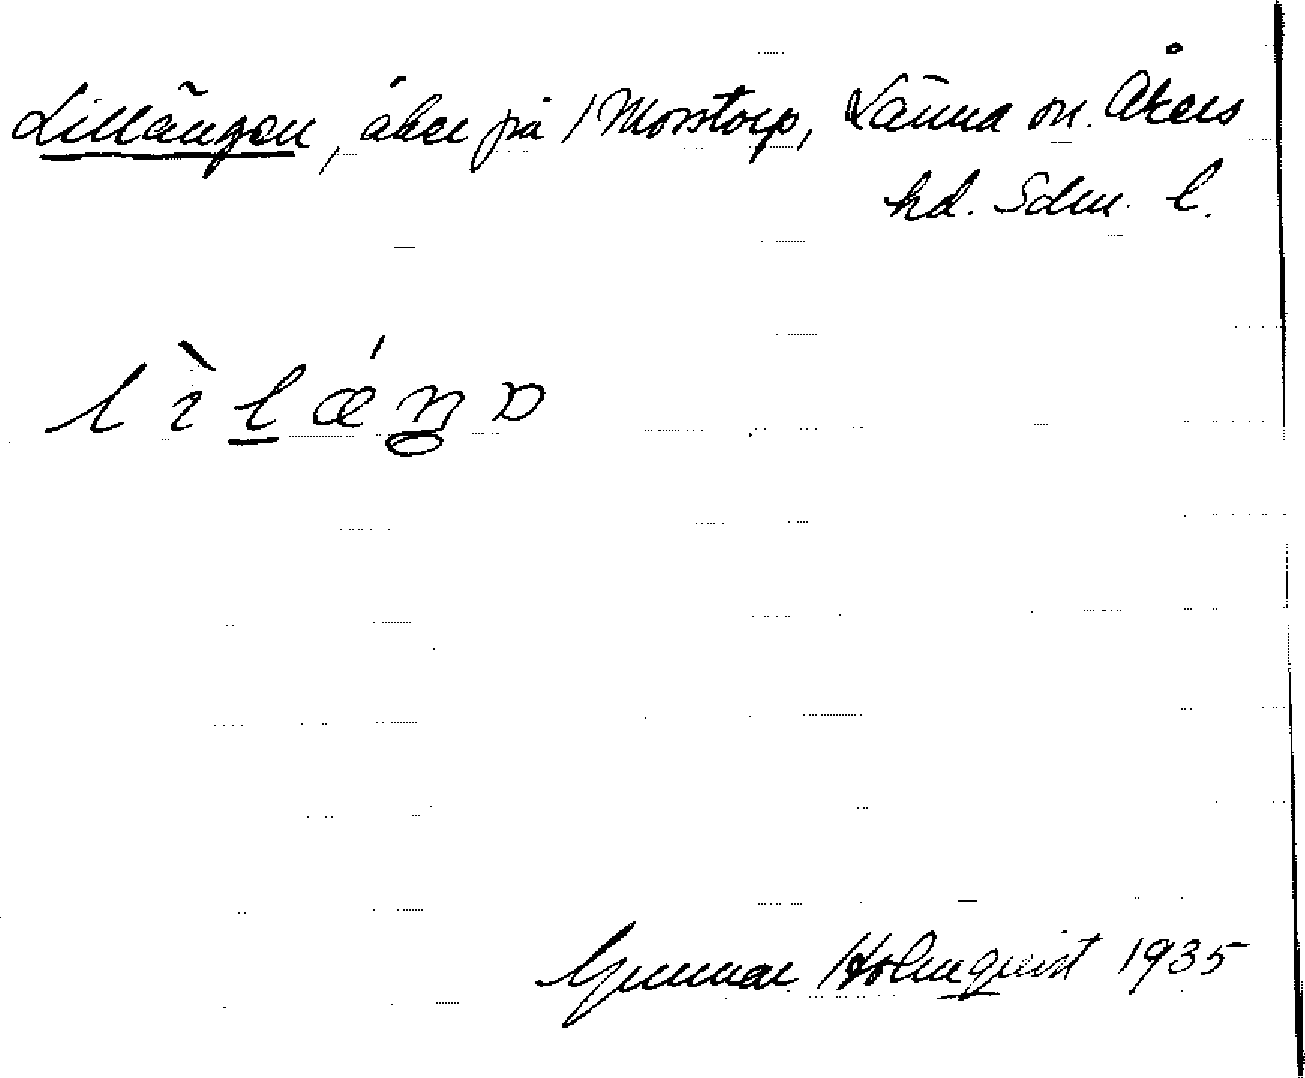 Lillängen, åker på 1 Morstorp, Länna sn. Åkers
hd. Sdm. l.
Gunnar Holmquist 1935